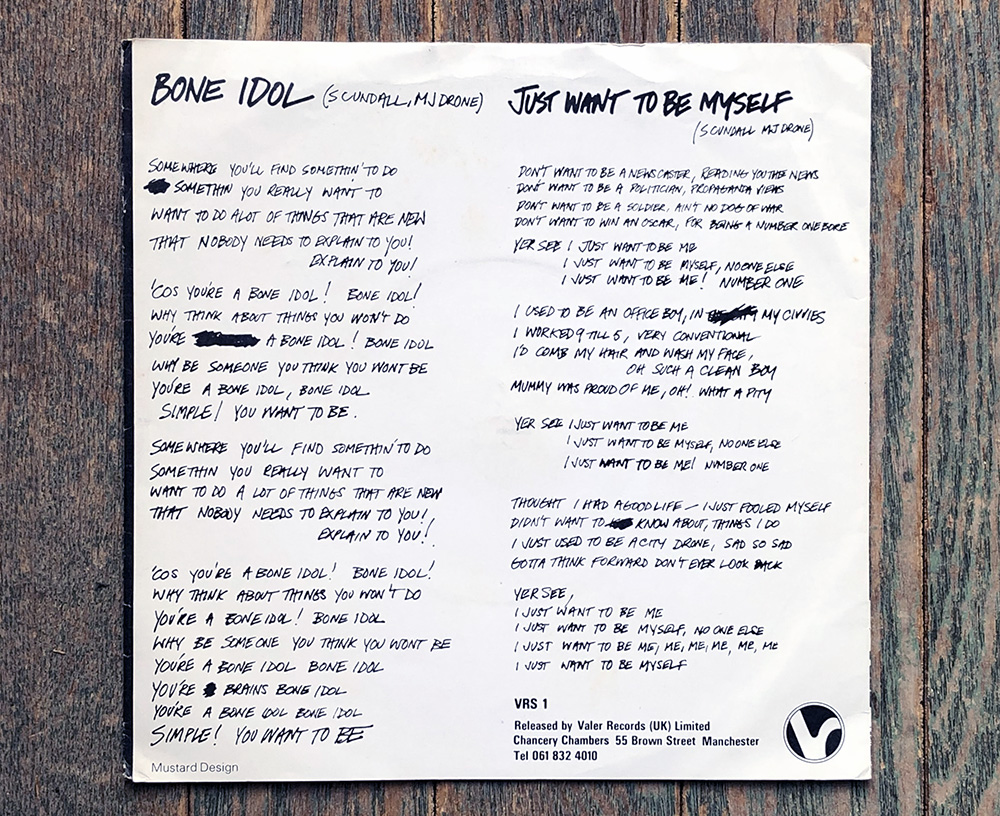 BONE IDOL (S CUNDALL, MJ DRONE)
SOMEWHERE YOU'LL FIND SOMETHIN' TO DO
SOMETHIN YOU REALLY WANT TO
WANT TO DO ALOT OF THINGS THAT ARE NEW
THAT NOBODY NEEDS TO EXPLAIN TO YOU!
EXPLAIN TO YOU!
'COS YOU'RE A BONE IDOL! BONE IDOL!
WHY THINK ABOUT THINGS YOU WON'T DO
YOU'RE A BONE IDOL! BONE IDOL
WHY BE SOMEONE YOU THINK YOU WONT BE
YOU'RE A BONE IDOL, BONE IDOL
SIMPLE! YOU WANT TO BE.
SOMEWHERE YOU'LL FIND SOMETHIN' TO DO
SOMETHIN YOU REALLY WANT TO
WANT TO DO A LOT OF THINGS THAT ARE NEW
THAT NOBODY NEEDS TO EXPLAIN TO YOU!
EXPLAIN TO YOU!
'COS YOU'RE A BONE IDOL! BONE IDOL!
WHY THINK ABOUT THINGS YOU WON'T DO
YOU'RE A BONE IDOL! BONE IDOL
WHY BE SOMEONE YOU THINK YOU WONT BE
YOU'RE A BONE IDOL BONE IDOL
YOU'RE BRAINS BONE IDOL
YOU'RE A BONE IDOL BONE IDOL
SIMPLE! YOU WANT TO BE
Mustard Design
JUST WANT TO BE MYSELF
(S CUNDALL MJ DRONE)
DON'T WANT TO BE A NEWSCASTER, READING YOU THE NEWS
DON'T WANT TO BE A POLITICIAN, PROPAGANDA VIEWS
DON'T WANT TO BE A SOLDIER, AIN'T NO DOG OF WAR
DON'T WANT TO WIN AN OSCAR, FOR BEING A NUMBER ONE BORE
YER SEE I JUST WANT TO BE ME
I JUST WANT TO BE MYSELF, NO ONE ELSE
I JUST WANT TO BE ME! NUMBER ONE
I USED TO BE AN OFFICE BOY, IN MY CIVVIES
I WORKED 9 TILL 5, VERY CONVENTIONAL
I'D COMB MY HAIR AND WASH MY FACE,
OH SUCH A CLEAN BOY
MUMMY WAS PROUD OF ME, OH! WHAT A PITY
YER SEE I JUST WANT TO BE ME
I JUST WANT TO BE MYSELF, NO ONE ELSE
I JUST WANT TO BE ME! NUMBER ONE
THOUGHT I HAD A GOOD LIFE – I JUST FOOLED MYSELF
DIDN'T WANT TO KNOW ABOUT, THINGS I DO
I JUST USED TO BE A CITY DRONE, SAD SO SAD
GOTTA THINK FORWARD DON'T EVER LOOK BACK
YER SEE,
I JUST WANT TO BE ME
I JUST WANT TO BE MYSELF, NO ONE ELSE
I JUST WANT TO BE ME, ME, ME, ME, ME, ME
I JUST WANT TO BE MYSELF
VRS 1
Released by Valer Records (UK) Limited
Chancery Chambers 55 Brown Street Manchester
Tel 061 832 4010